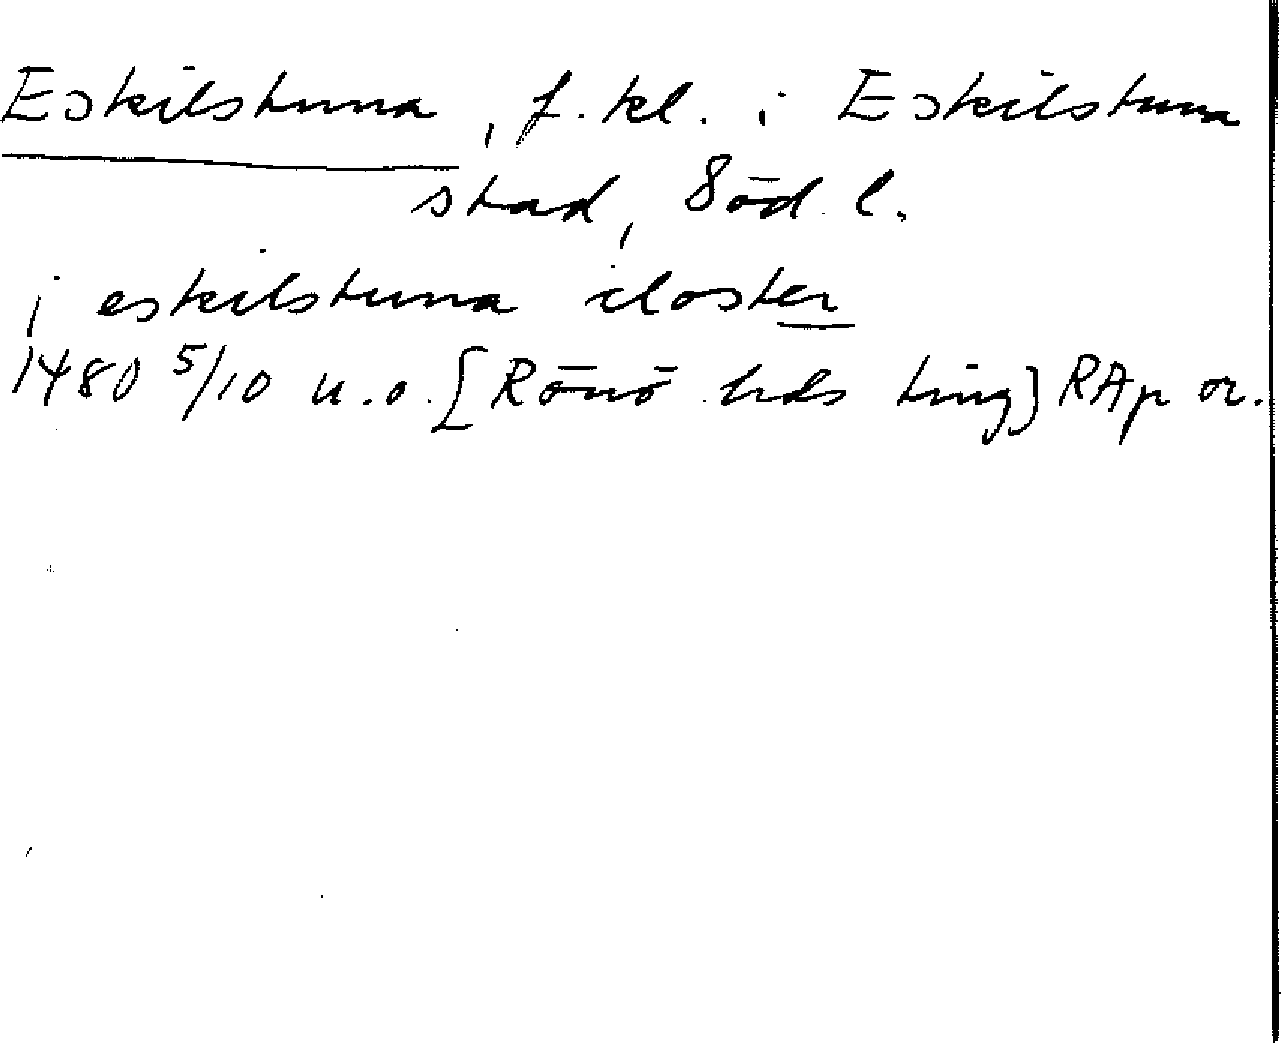 Eskilstuna, f. kl. i Eskilstuna
stad, Söd. l.
j eskilstuna closter
1480 5/10 u.o. [Rönö hds ting] RAp or.